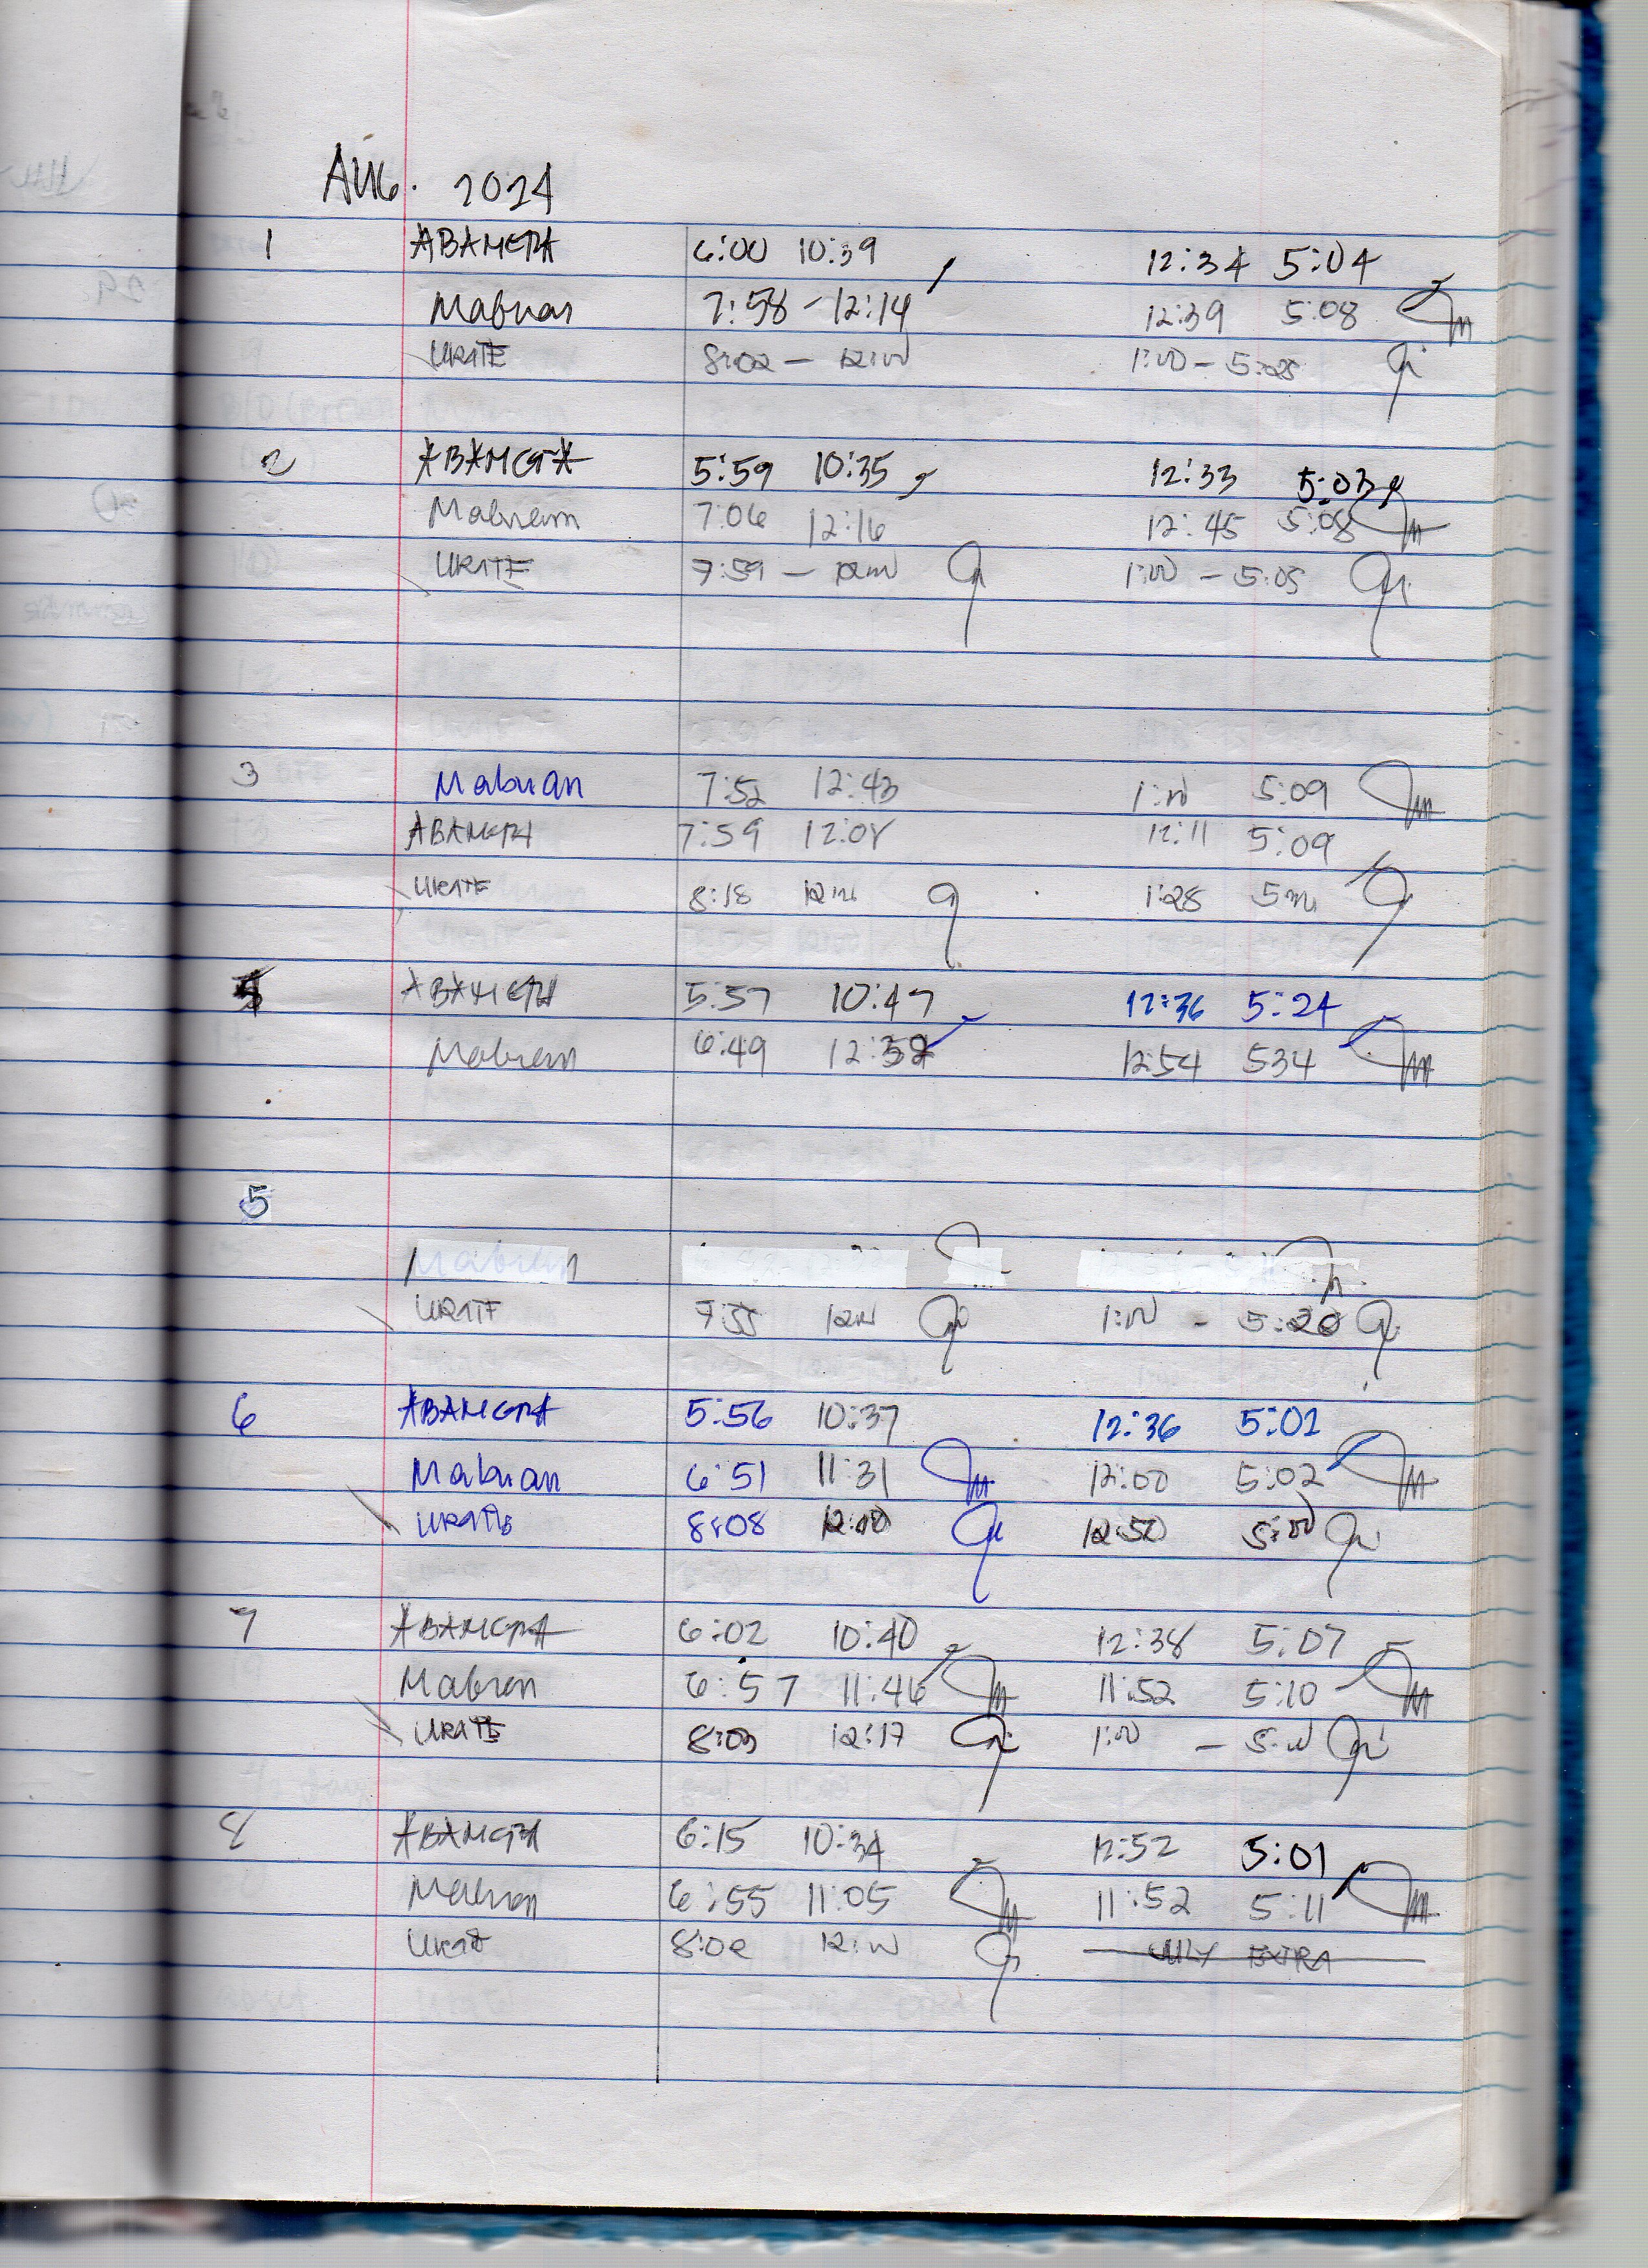 AUG. 2024
1 ABAMGTA 6:00 10:39 12:34 5:04
Mabuan 7:58 - 12:14 12:39 5:08
URATE 8:02 - 12:00 1:00 - 5:25
2 ABAMGTA 5:59 10:35 12:33 5:03
Mabuan 7:06 12:16 12:45 5:08
URATE 7:59 - 12:00 1:00 - 5:05
3 Mabuan 7:52 12:43 1:00 5:09
ABAMGTA 7:59 12:08 12:11 5:09
URATE 8:18 12:00 1:28 5:00
ABAMGTA 5:57 10:47 12:36 5:24
Mabuan 6:49 12:54 534
5
Mabuan
URATE 7:55 12:00 1:00 - 5:20
6 ABAMGTA 5:56 10:37 12:36 5:01
Mabuan 6:51 11:31 12:00 5:02
URATE 8:08 12:00 12:50 5:00
7 ABAMGTA 6:02 10:40 12:38 5:07
Mabuan 6:57 11:46 11:52 5:10
URATE 8:03 12:17 1:00 - 5:00
8 ABAMGTA 6:15 10:34 12:52 5:01
Mabuan 6:55 11:05 11:52 5:11
URATE 8:02 12:00 EXTRA